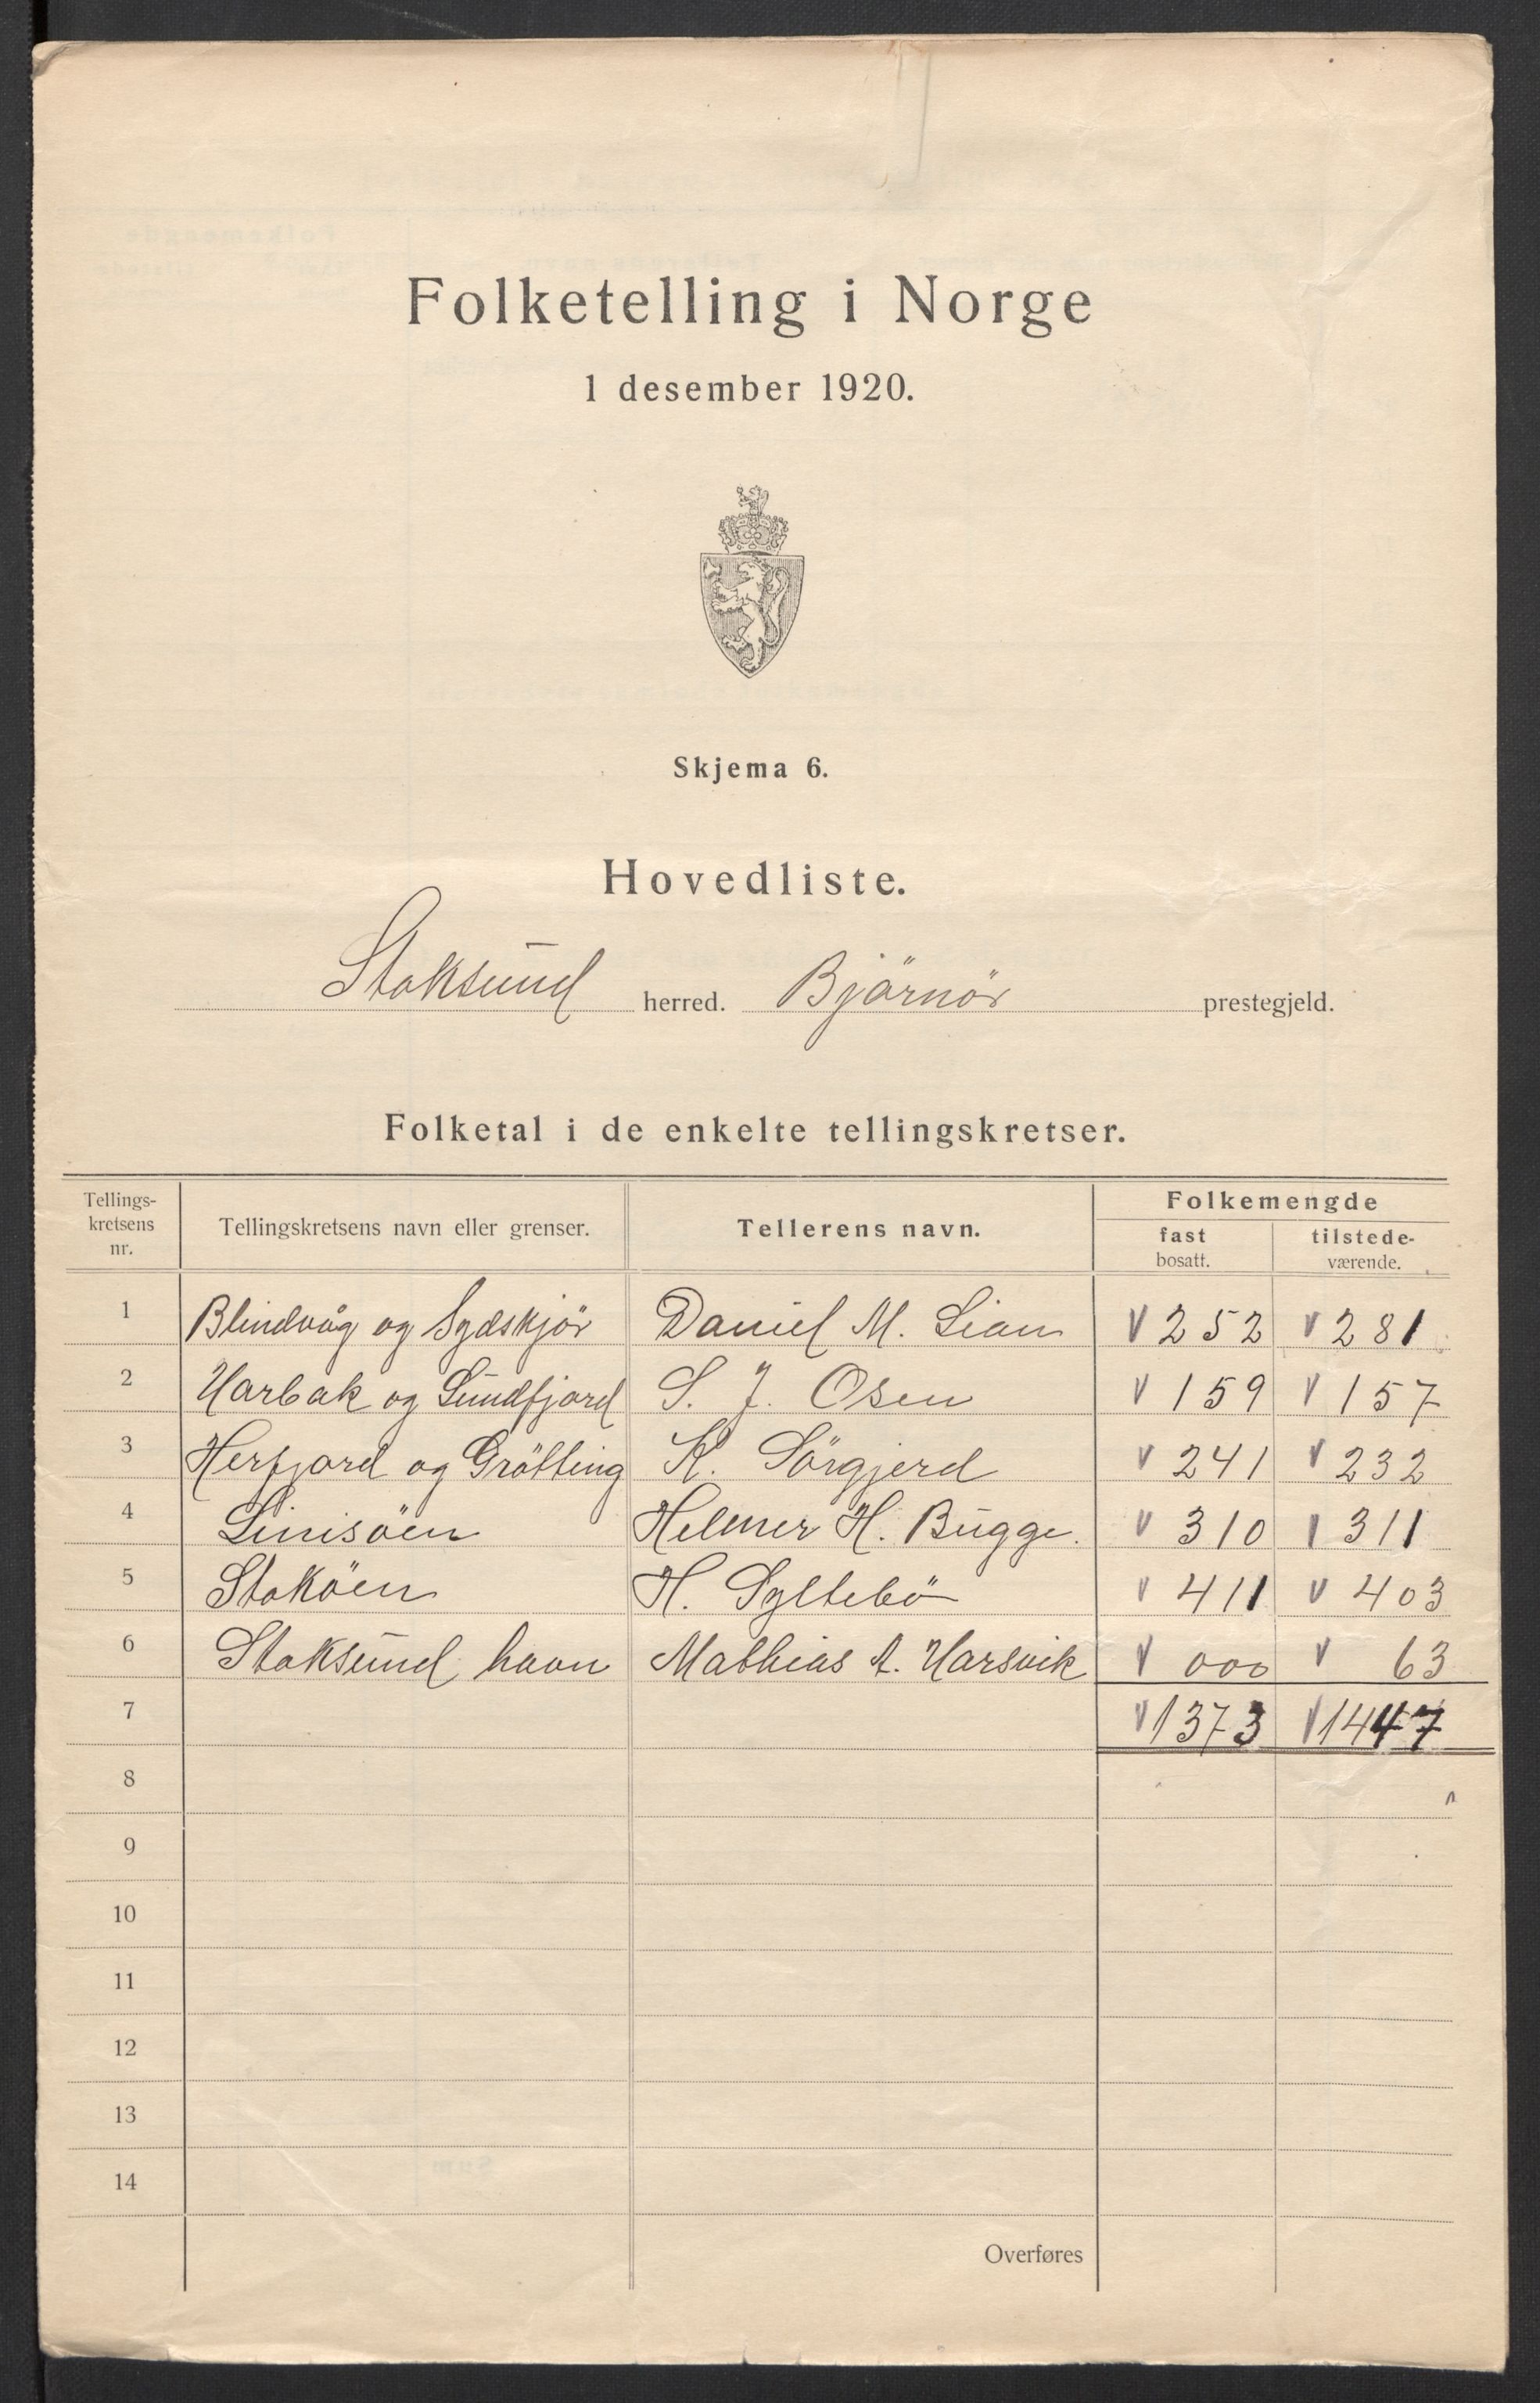 Folketelling i Norge
1 desember 1920.
Skjema 6.
Hovedliste.
Stoksund herred. Bjørnør prestegjeld.
Folketal i de enkelte tellingskretser.
Tellings-kretsens nr. Tellingskretsens navn eller grenser. Tellerens navn. Folkemengde fast bosatt. tilstede-værende.
1 Blindvåg og Sydskjør Daniel M. Lian V 252 V 281
2 Harbak og Sundfjord S. J. Osen V 159 V 157
3 Herfjord og Grøtting K. Sørgjerd V 241 V 232
4 Linisøen Helmer H. Bugge. V 310 V 311
5 Stokøen H. Syltebø V 411 V 403
6 Stoksund havn Mathias A. Harsvik V 000 V 63
7 V 1373 V 1447
8
9
10
11
12
13
14
Overføres